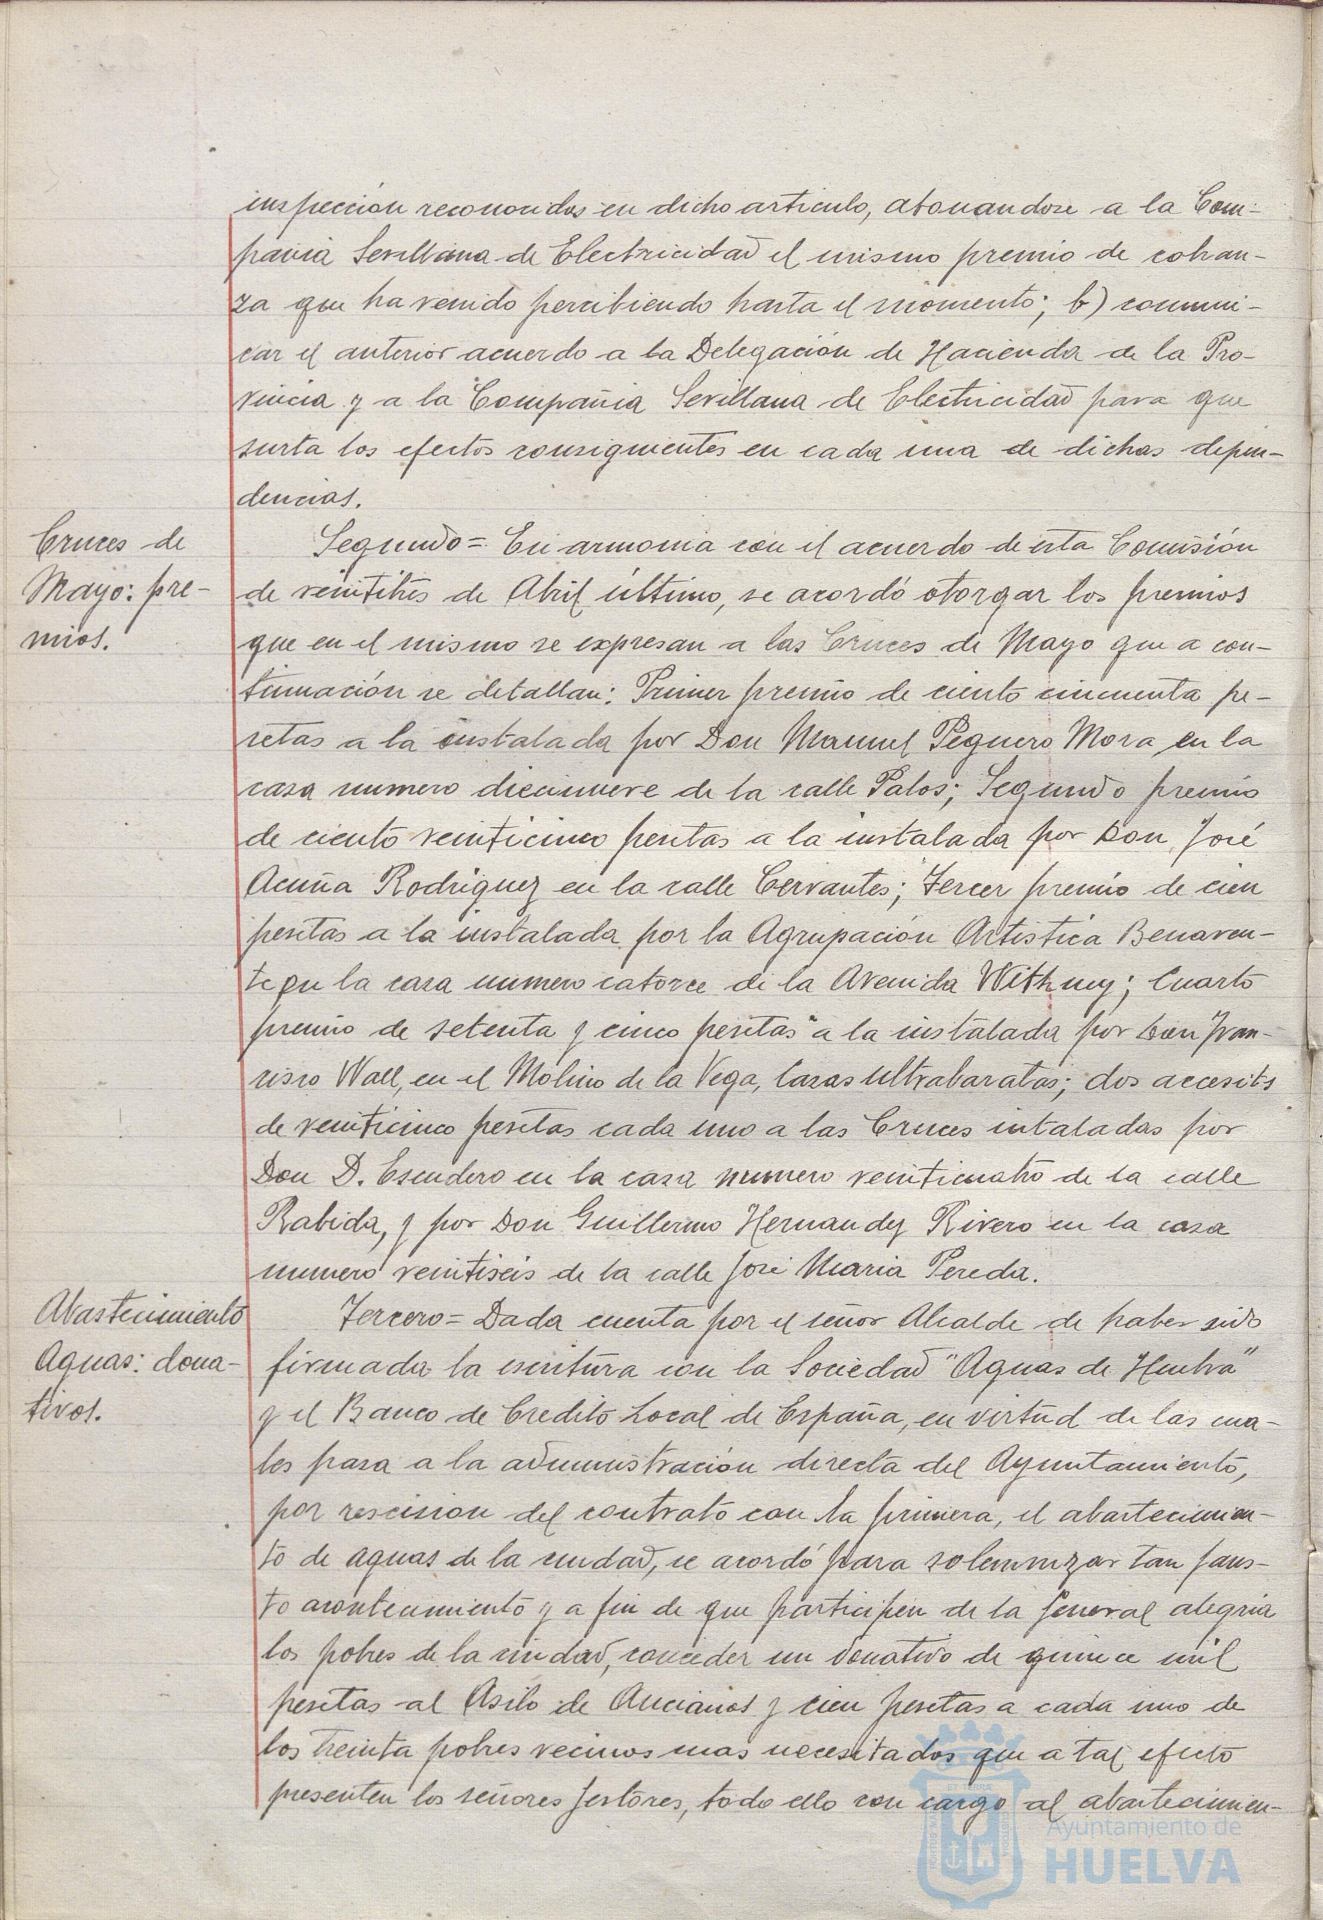 inspección reconocidos en dicho articulo, abonandose a la Com-
pañia Sevillana de Electricidad el mismo premio de cobran-
za que ha venido percibiendo hasta el momento; b) comuni-
car el anterior acuerdo a la Delegación de Hacienda de la Pro-
vincia y a la Compañia Sevillana de Electricidad para que
surta los efectos consiguientes en cada una de dichas depen-
dencias.
Cruces de
Mayo: pre-
mios.
Segundo= En armonia con el acuerdo de esta Comisión
de veintitrés de Abril último, se acordó otorgar los premios
que en el mismo se expresan a las Cruces de Mayo que a con-
tinuación se detallan: Primer premio de ciento cincuenta pe-
setas a la instalada por Don Manuel Peguero Mora en la
casa numero diecinueve de la calle Palos; Segundo premio
de ciento veinticinco pesetas a la instalada por Don José
Acuña Rodriguez en la calle Cervantes; Tercer premio de cien
pesetas a la instalada por la Agrupación Artistica Benaven-
te en la casa numero catorce de la Avenida Withney; Cuarto
premio de setenta y cinco pesetas a la instalada por Don Fran-
cisco Wall, en el Molino de la Vega, Casas ultrabaratas; dos accesits
de veinticinco pesetas cada uno a las Cruces intaladas por
Don D. Escudero en la casa numero veinticuatro de la calle
Rabida, y por Don Guillermo Hernandez Rivero en la casa
numero veintiseis de la calle José Maria Pereda.
Abastecimiento
Aguas: dona-
tivos.
Tercero= Dada cuenta por el señor Alcalde de haber sido
firmada la escritura con la Sociedad "Aguas de Huelva"
y el Banco de Credito Local de España, en virtud de las cua-
les pasa a la administración directa del Ayuntamiento,
por rescision del contrato con la primera, el abastecimien-
to de aguas de la ciudad, se acordó para solemnizar tan faus-
to acontecimiento y a fin de que participen de la general alegria
los pobres de la ciudad, conceder un donativo de quince mil
pesetas al Asilo de Ancianos y cien pesetas a cada uno de
los treinta pobres vecinos mas necesitados que a tal efecto
presenten los señores Gestores, todo ello con cargo al abastecimien-
Ayuntamiento de
HUELVA